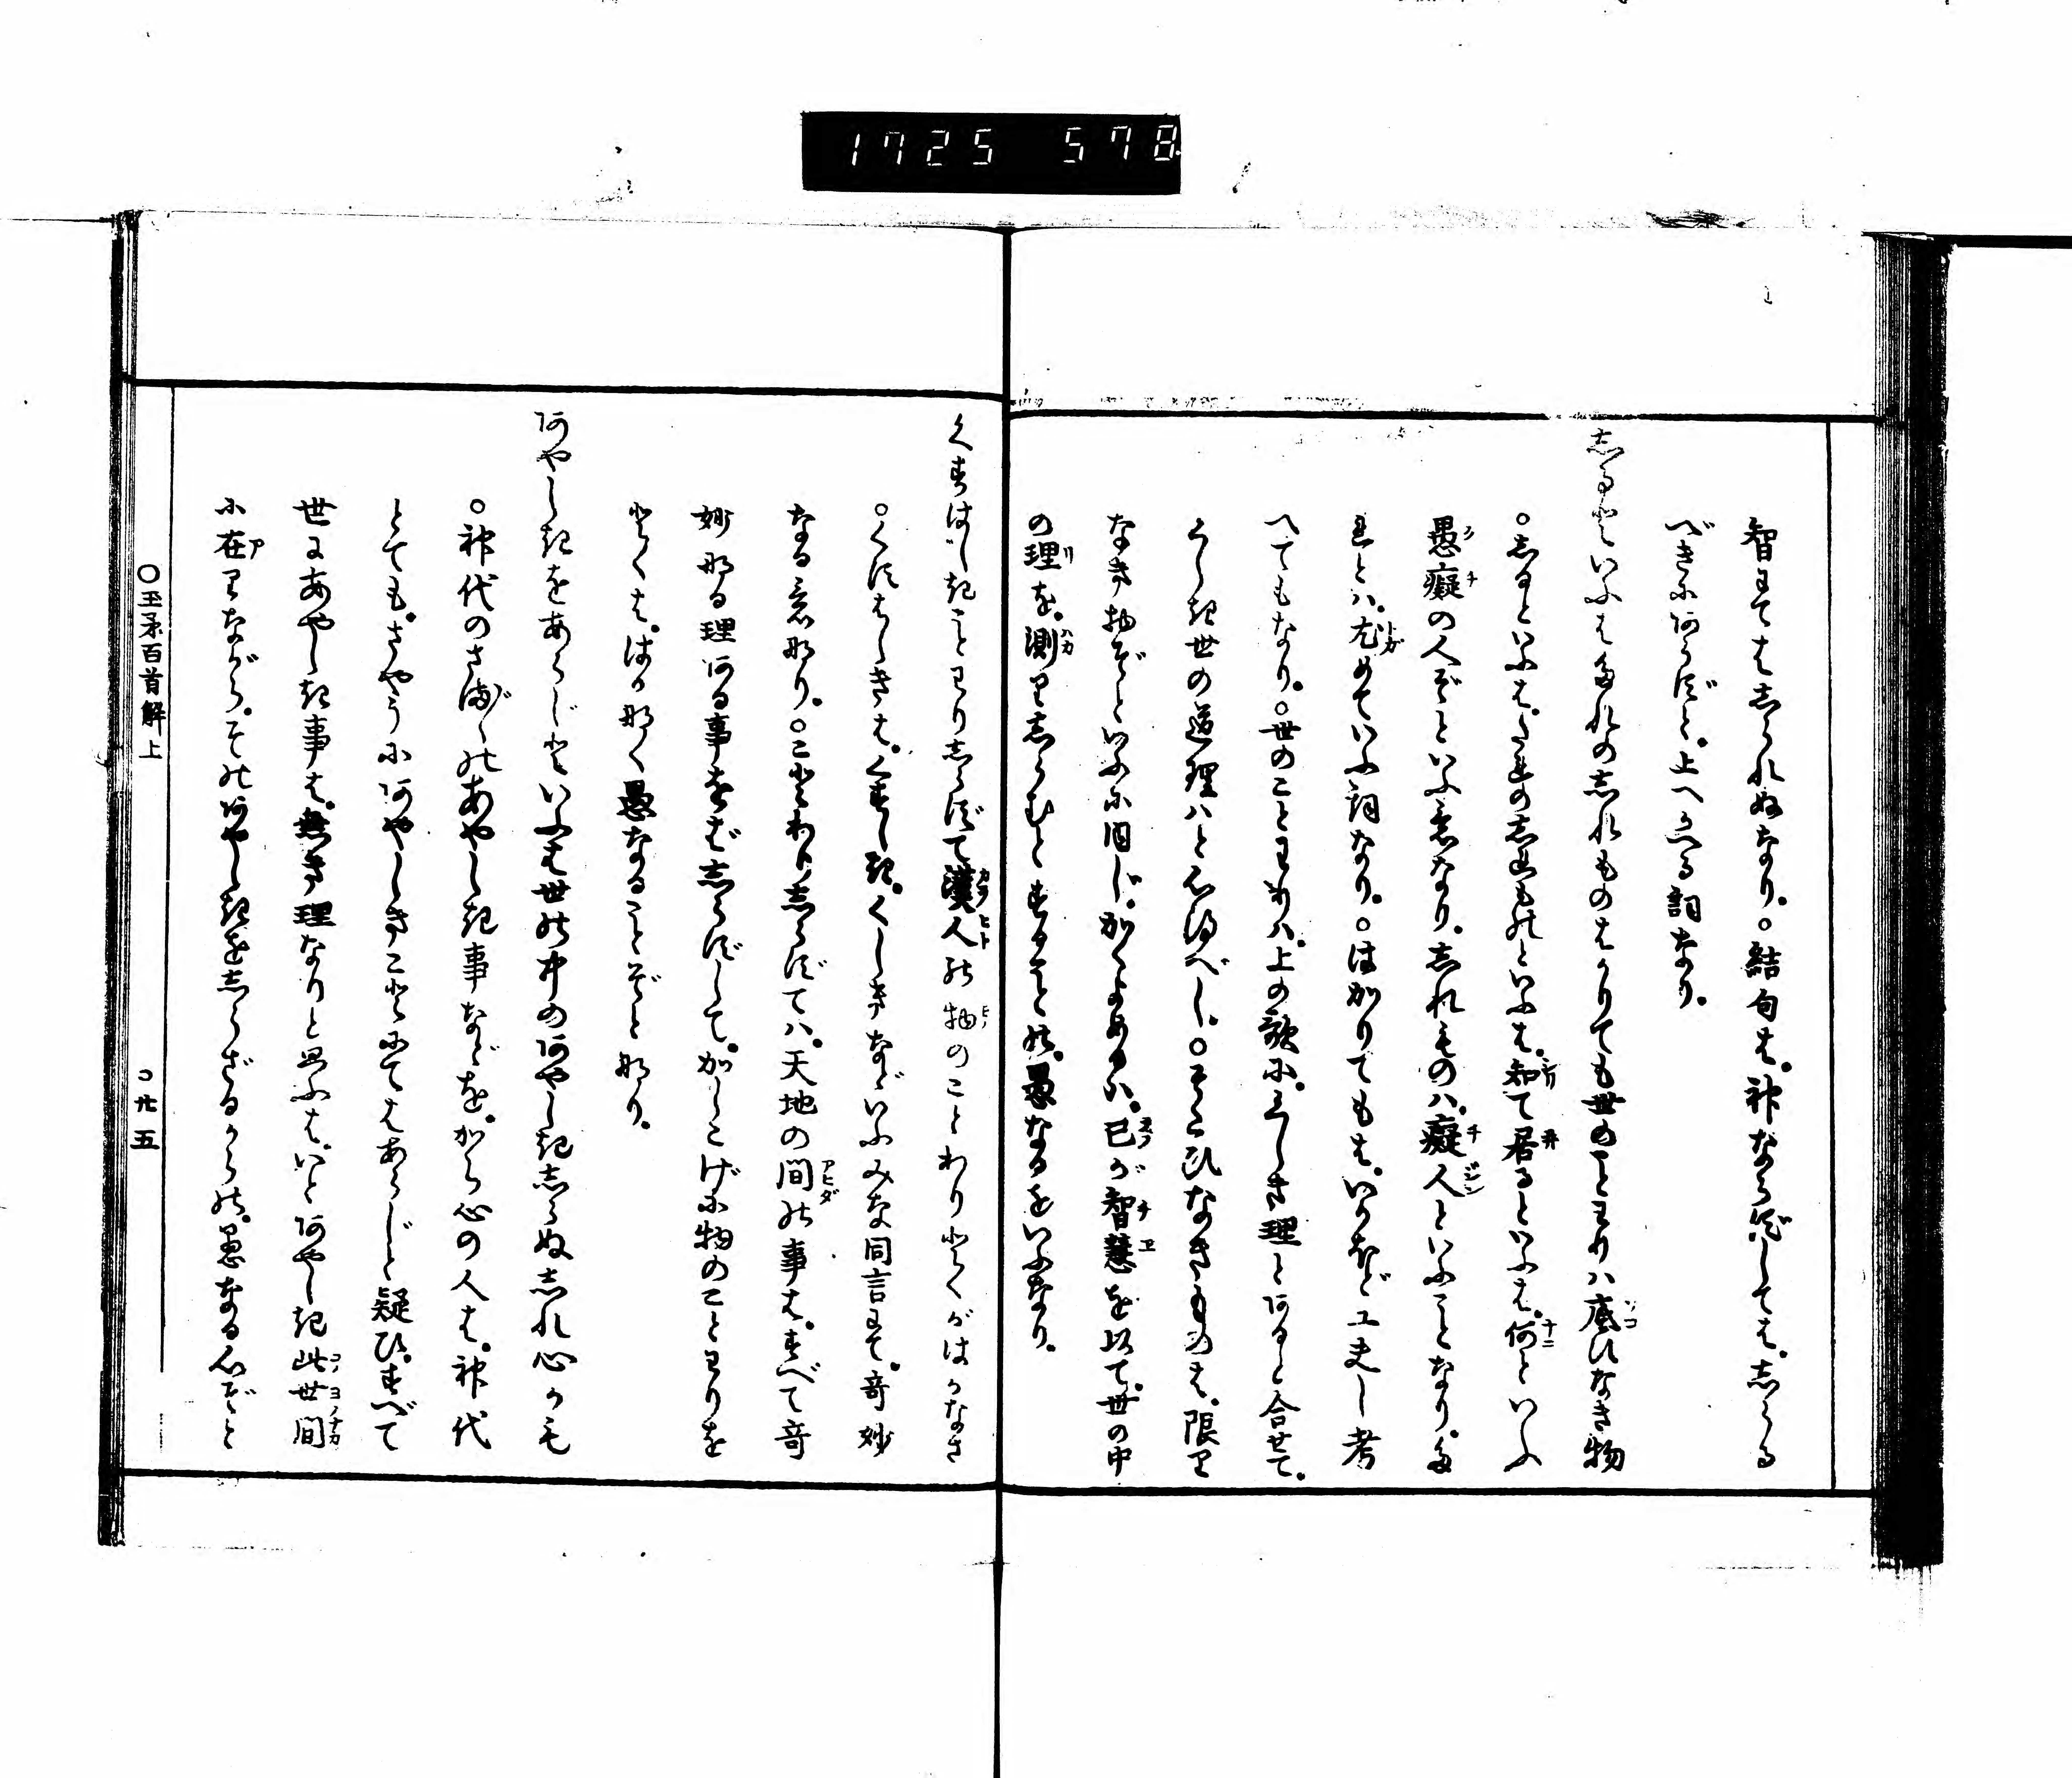 1725 578
智にては志られぬなり。○結句は。神ならずしては。志らる
べきにあらずと。上へかへる詞なり。
志るといふは誰の志れものはかりても世のことわりハ底ひなき物
○志るといふは。たれの志れものといふは。知て居るといふは。何といふ
愚癡の人ぞといふ意なり。志れものハ。癡人といふことなり。た
れとハ。尤めていふ詞なり。○はかりてもは。いかほど工夫し考
へてもなり。○世のことわりハ。上の歌に。くしき理とあると合せて。
くしき世の道理ハと心得べし。○そこひなきものは。限り
なき物ぞといふに同じ。かくよめるハ。己が智慧を以て。世の中
の理を。測り志らむとすることの。愚なるをいふなり。
くすはしきことわり志らずて漢人の物のことわりとくがはかなさ
○くすはしきは。くすしき。くしきなどいふみな同言にて。奇妙
なる意なり。○ことわり志らずてハ。天地の間の事は。すべて奇
妙なる理ある事をば志らずして。かしこげに物のことわりを
とくは。はかなく愚なることぞと也。
あやしきをあらじといふは世の中のあやしき志らぬ志れ心かも
○神代のさまざまのあやしき事などを。から心の人は。神代
とても。さやうにあやしきことにてはあらじと疑ひ。すべて
世にあやしき事は。無き理なりと思ふは。いとあやしき此世間
に在りながら。その何やしきを志らざるからの。愚なる心ぞと
○玉矛百首解上
○廿五